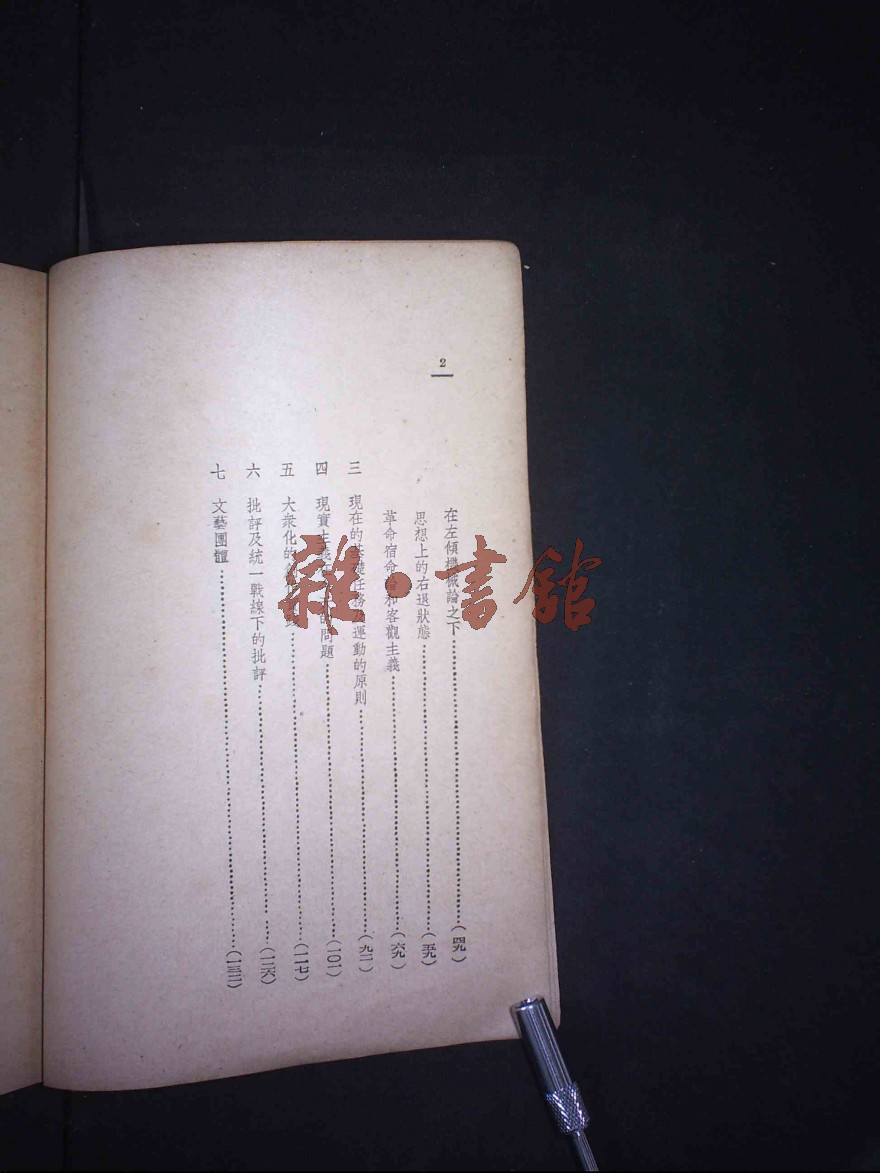 2
在左傾機械論之下……(四九)
思想上的右退狀態……(五九)
革命宿命 和客觀主義……(六九)
三 現在的基礎任務及運動的原則……(九二)
四 現實主義 問題……(一〇一)
五 大衆化的……(一一七)
六 批評及統一戰線下的批評……(一二六)
七 文藝團體……(一三二)
雜·書館